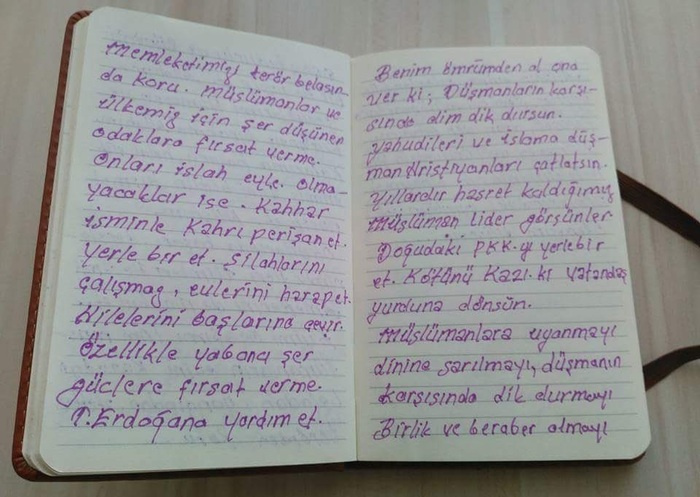 Memleketimizi terör belasın-
da koru. müslümanlar ve
ülkemiz için şer düşünen
odaklara fırsat verme.
Onları islah eyle. olma-
yacaklar ise. Kahhar
isminle Kahrı perişan et.
yerle bir et. Silahlarını
çalışmaz, evlerini harap et.
Hilelerini başlarına çevir.
Özellikle yabancı şer
güçlere fırsat verme.
T. Erdoğana yardım et.
Benim ömrümden al ona
ver ki; Düşmanların karşı-
sında dim dik dursun.
yahudileri ve islama düş-
man Hristiyanları çatlatsın.
Yıllardır hasret kaldığımız
Müslüman lider görsünler
Doğudaki PKK-yı yerlebir
et. Kötünü Kazı. ki vatandaş
yurduna dönsün.
Müslümanlara uyanmayı
dinine sarılmayı, düşmanın
karşısında dik durmayı
Birlik ve beraber olmayı